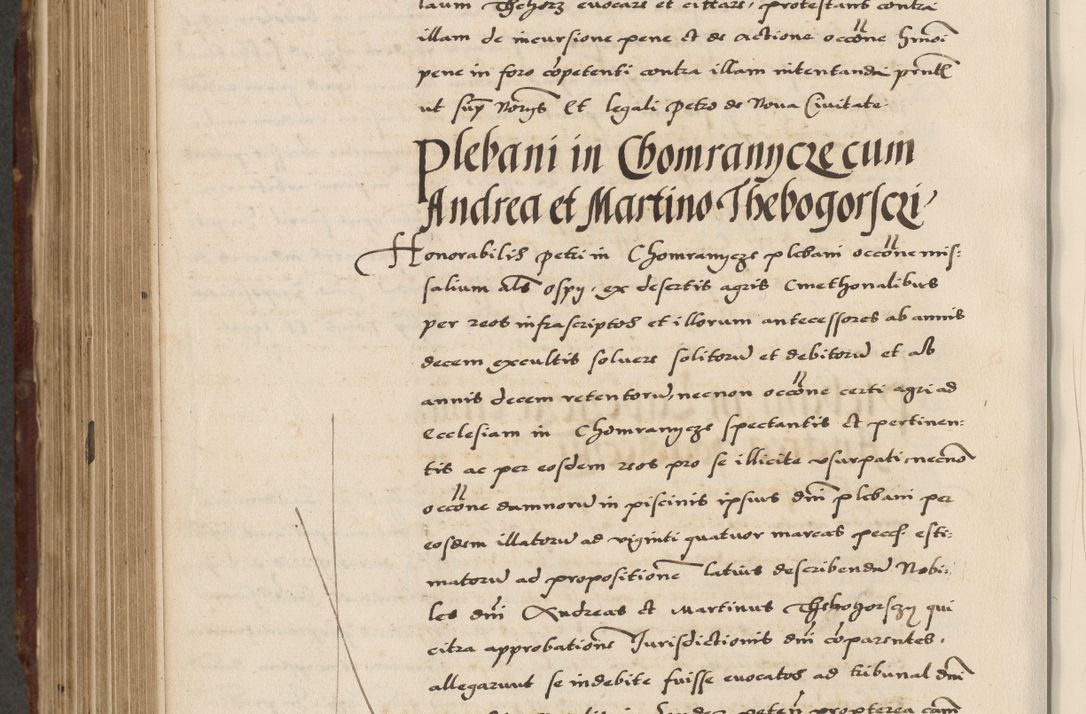 laum Thehorz evocare et cittare, protestans contra
illam de incursione pene et de actione occōne hmōi
pene in foro cōpetenti contra illam intentanda pr̄ntē
ut sup̄ Norgs et legali Petro de Nova Civitate
Plebani in Chomranycze cum
Andrea et Martino Thebogorsczi
Honorabilis Petri in Chomranycze plebani occōne mis:
salium als ospy, ex desertis agris Cmethonalibus
per reos infrascriptos et illorum antecessores ab annis
decem excultis solvere solitorū et debitorū et ab
annis decem retentorū, necnon occōne certi agri ad
Ecclesiam in Chomranycze spectantis et pertinen:
tis ac per eosdem reos pro se illicite usurpati necnō
occōne damnorū in piscinis ipsius dn̄i plebani per
eosdem illatorū ad viginti quatuor marcas pecc̄ esti:
matorū ad propositionē latius describendū Nobi:
les dn̄i Andreas et Martinus Thebogorsczy qui
citra approbationē Jurisdictionis dn̄i cōparentes,
allegarunt se indebite fuisse evocatos ad tribunal dn̄i
propterea cām